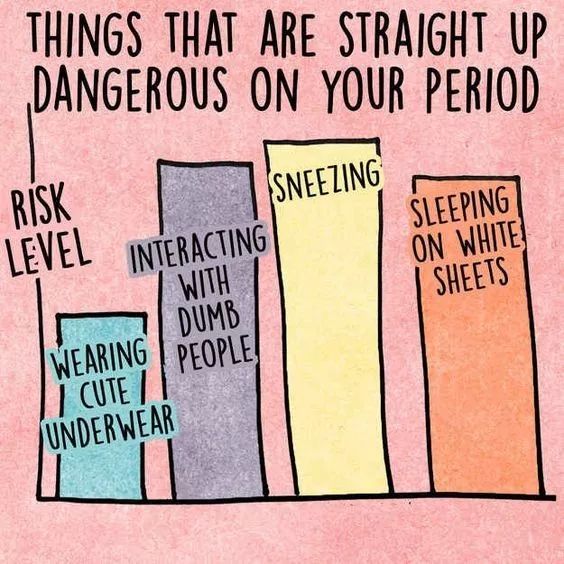 THINGS THAT ARE STRAIGHT UP
DANGEROUS ON YOUR PERIOD
RISK
LEVEL
WEARING
CUTE
UNDERWEAR
INTERACTING
WITH
DUMB
PEOPLE
SNEEZING
SLEEPING
ON WHITE
SHEETS